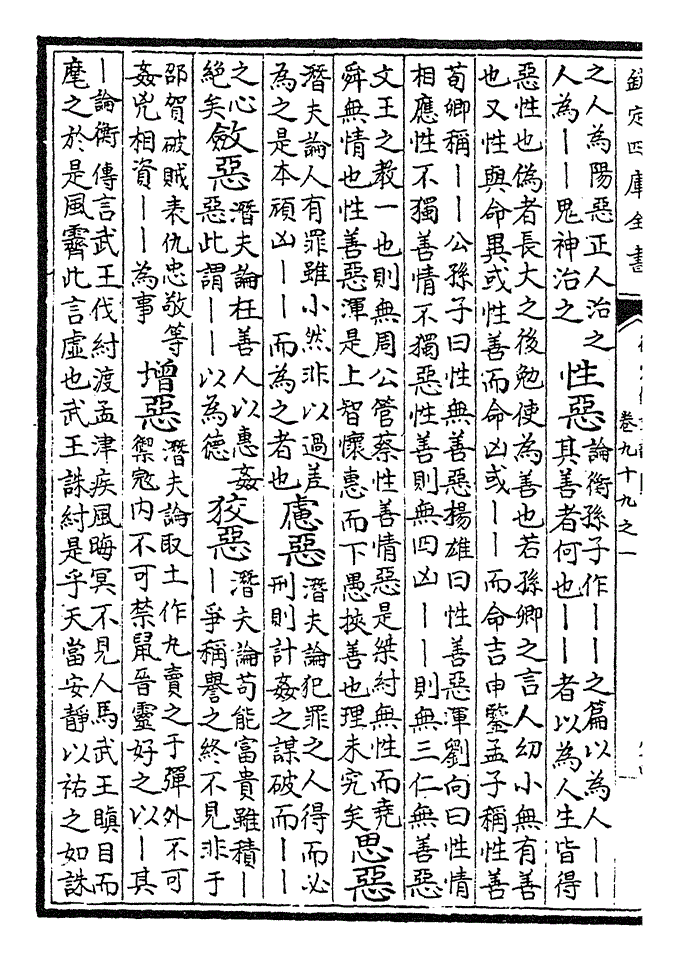 欽定四庫全書
卷九十九之一
之人為陽惡正人治之
人為丨丨鬼神治之
性惡
論衡孫子作丨丨之篇以為人丨丨
其善者何也丨丨者以為人生皆得
惡性也偽者長大之後勉使為善也若孫卿之言人幼小無有善
也又性與命異或性善而命凶或丨丨而命吉申鑒孟子稱性善
荀卿稱丨丨公孫子曰性無善惡揚雄曰性善惡渾劉向曰性情
相應性不獨善情不獨惡性善則無四凶丨丨則無三仁無善惡
文王之教一也則無周公管蔡性善情惡是桀紂無性而堯
舜無情也性善惡渾是上智懷惠而下愚挾善也理未究矣
思惡
潛夫論人有罪雖小然非以過差
為之是本頑凶丨丨而為之者也
慮惡
潛夫論犯罪之人得而必
刑則計姦之謀破而丨丨
之心
絕矣
斂惡
潛夫論枉善人以惠姦
惡此謂丨丨以為德
狡惡
潛夫論苟能富貴雖積丨
丨爭稱譽之終不見非于
邵賀破賊表仇忠敬等
姦兇相資丨丨為事
增惡
潛夫論取土作丸賣之于彈外不可
禦寇內不可禁鼠晉靈好之以丨其
丨論衡傳言武王伐紂渡孟津疾風晦冥不見人馬武王瞋目而
麾之於是風霽此言虛也武王誅紂是乎天當安靜以祐之如誅